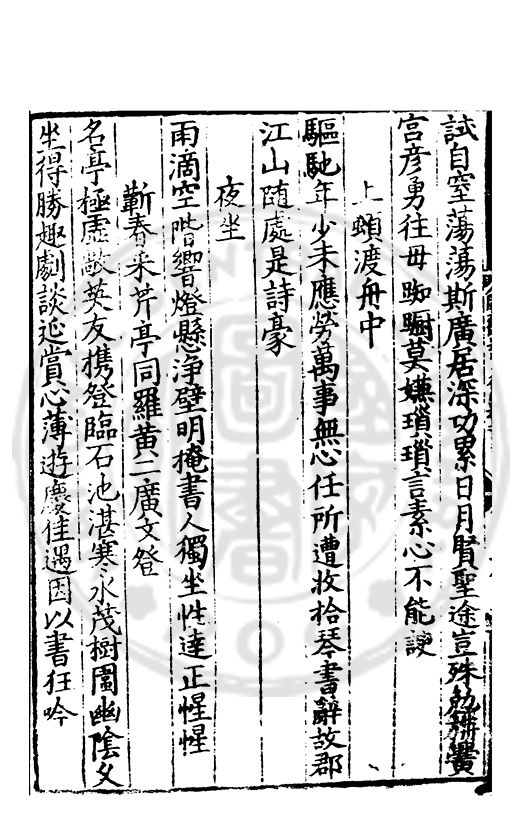 試自窒蕩蕩斯廣居深功累日月賢聖途豈殊勉旃黌
宮彥勇往毋踟躕莫嫌瑣瑣言素心不能諛
上顿渡舟中
驅馳年少未應勞萬事無心任所遭收拾琴書辭故郡
江山随處是詩豪
夜坐
雨滴空階響燈懸浄壁明掩書人獨坐性達正惺惺
蘄春采芹亭同羅黄二廣文登
名亭極虛敞英友携登臨石池湛寒水茂樹圍幽陰文
坐得勝趣劇談延賞心薄遊慶佳遇因以書狂吟